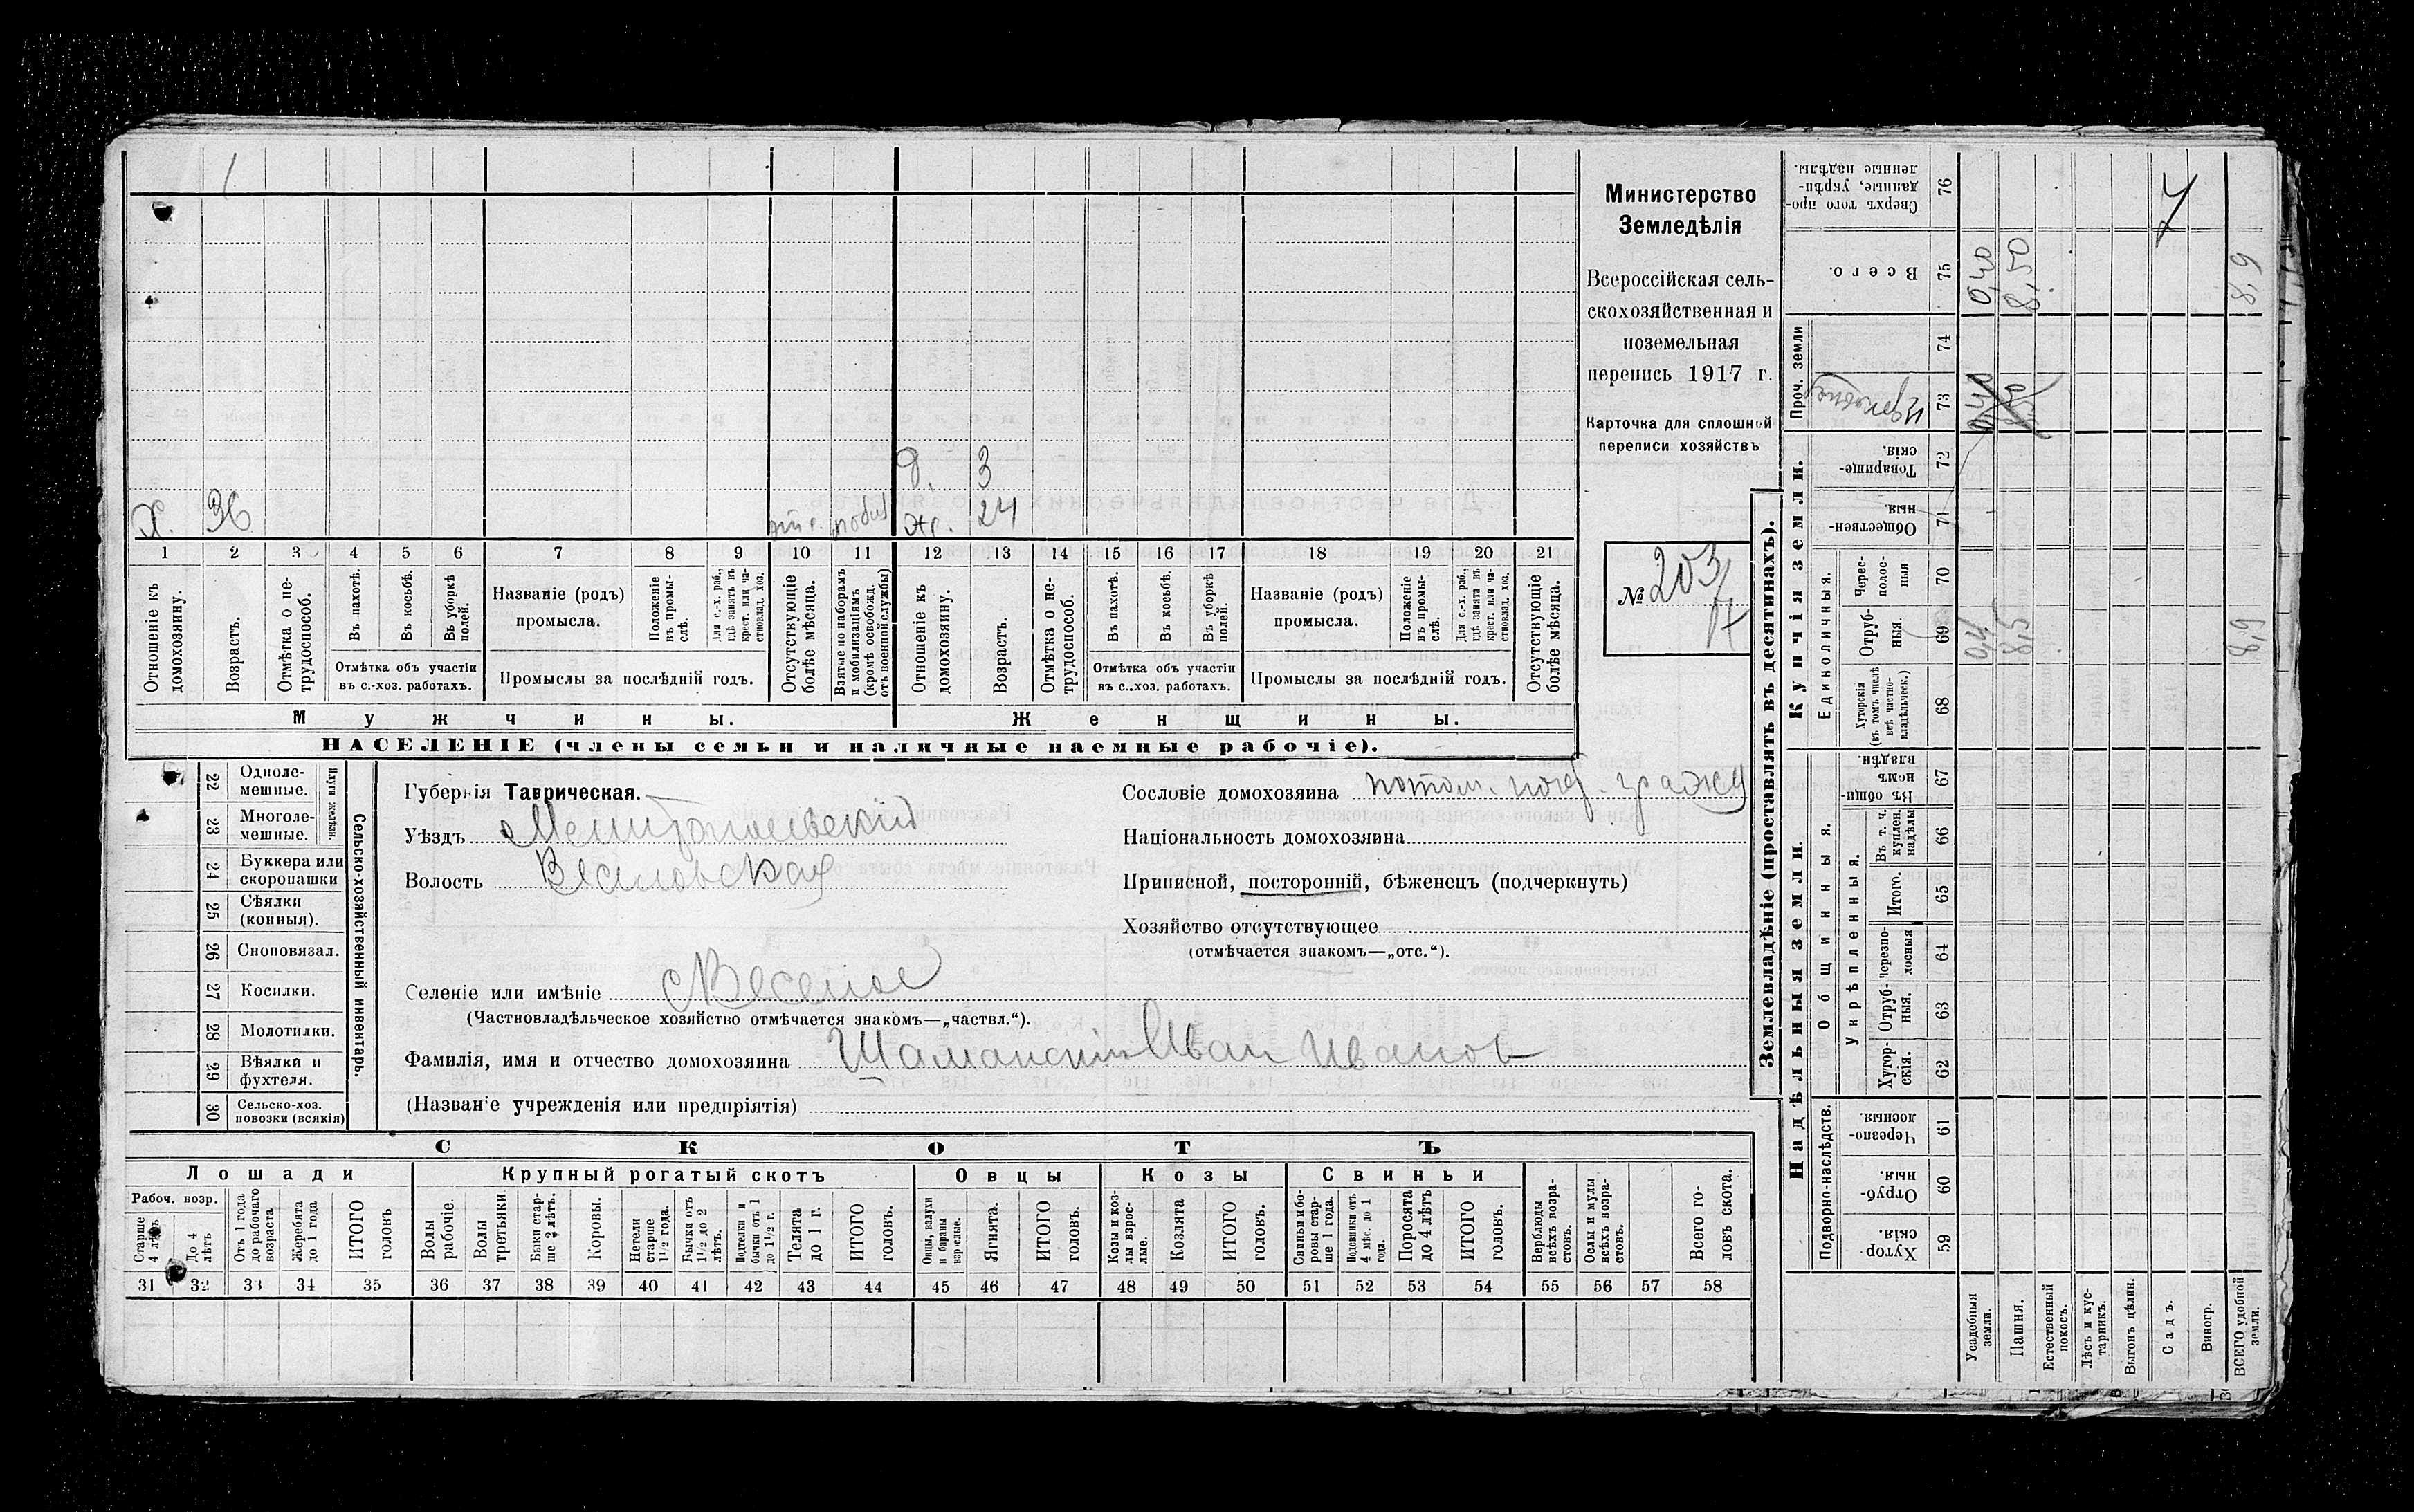 Министерство
Земледѣлія
Всероссійская сель-
скохозяйственная и
поземельная
перепись 1917 г.
Карточка для сплошной
переписи хозяйствъ
№ 203
д. 3
Х. 36
ж. 24
1 2 3 4 5 6 7 8 9 10 11 12 13 14 15 16 17 18 19 20 21
Отношеніе къ домохозяину.
Возрастъ.
Отмѣтка о не-трудоспособ.
Въ пахотѣ.
Въ косьбѣ.
Въ уборкѣ полей.
Отмѣтка объ участіи
въ с.-хоз. работахъ.
Названіе (родъ)
промысла.
Положеніе въ промы-слѣ.
Для с.-х. раб., гдѣ занятъ въ крест. или ча-стновлад. хоз.
Промыслы за послѣдній годъ.
Отсутствующіе болѣе мѣсяца.
Взятые по наборамъ и мобилизаціямъ (кромѣ освобожд. отъ военной службы)
Отношеніе къ домохозяину.
Возрастъ.
Отмѣтка о не-трудоспособ.
Въ пахотѣ.
Въ косьбѣ.
Въ уборкѣ полей.
Отмѣтка объ участіи
въ с.-хоз. работахъ.
Названіе (родъ)
промысла.
Положеніе въ промы-слѣ.
Для с.-х. раб., гдѣ занята въ крест. или ча-стновлад. хоз.
Промыслы за послѣдній годъ.
Отсутствующіе болѣе мѣсяца.
Мужчины.
Женщины.
НАСЕЛЕНІЕ (члены семьи и наличные наемные рабочіе).
Сельско-хозяйственный инвентарь.
Плуги желѣзн.
22 Одноле-мешные.
23 Многоле-мешные.
24 Буккера или скоропашки
25 Сѣялки (конныя).
26 Сноповязал.
27 Косилки.
28 Молотилки.
29 Вѣялки и фухтеля.
30 Сельско-хоз. повозки (всякія)
Губернія Таврическая.
Уѣздъ Мелитопольскій
Волость Веселовская
Селеніе или имѣніе с Веселое
(Частновладѣльческое хозяйство отмѣчается знакомъ—„частвл.“).
Фамилія, имя и отчество домохозяина Шаманскій Иван Иванов
(Названіе учрежденія или предпріятія)
Сословіе домохозяина потом. поч. гражд
Національность домохозяина
Приписной, посторонній, бѣженецъ (подчеркнуть)
Хозяйство отсутствующее
(отмѣчается знакомъ—„отс.“).
СКОТЪ
Лошади
Крупный рогатый скотъ
Овцы
Козы
Свиньи
Рабоч. возр.
Старше 4 лѣтъ
До 4 лѣтъ
Отъ 1 года до рабочаго возраста
Жеребята до 1 года
ИТОГО головъ
Волы рабочіе.
Волы третьяки.
Быки стар-ше 2 лѣтъ.
Коровы.
Нетели старше 1½ года.
Бычки отъ 1½ до 2 лѣтъ.
Подтелки и бычки отъ 1 до 1½ г.
Телята до 1 г.
ИТОГО головъ.
Овцы, валухи и бараны взрослые.
Ягнята.
ИТОГО головъ.
Козы и коз-лы взрос-лые.
Козлята
ИТОГО головъ.
Свиньи и бо-ровы стар-ше 1 года.
Подсвинки отъ 4 мѣс. до 1 года.
Поросята до 4 лѣтъ
ИТОГО головъ.
Верблюды всѣхъ возра-стовъ.
Ослы и мулы всѣхъ возра-стовъ.
Всего го-ловъ скота.
31 32 33 34 35 36 37 38 39 40 41 42 43 44 45 46 47 48 49 50 51 52 53 54 55 56 57 58
Землевладѣніе (проставлять въ десятинахъ).
Надѣльныя земли.
Купчія земли.
Проч. земли
Подворно-наслѣдств.
Общинныя.
Укрѣпленныя.
Единоличныя.
Сверхъ того про-данные, укрѣп-ленные надѣлы. 76
Всего. 75
74
Церковной 73
Товарище-скія. 72
Обществен-ныя. 71
Черес-полос-ныя 70
Отруб-ныя. 69
Хуторскія (въ томъ числѣ всѣ частно-владѣльческ.) 68
Въ общи-номъ владѣн. 67
Въ т. ч. куплен. надѣлы 66
Итого. 65
Черезпо-лосныя 64
Отруб-ныя. 63
Хутор-скія. 62
Черезпо-лосныя 61
Отруб-ныя. 60
Хутор-скія. 59
Усадебныя земли. 0,4 0,40 0,40
Пашня. 8,5 8,50 8,50
Естественный покосъ.
Лѣсъ и кус-тарникъ.
Выгонъ цѣлин.
Садъ.
Виногр.
ВСЕГО удобной земли. 8,9 8,9
7